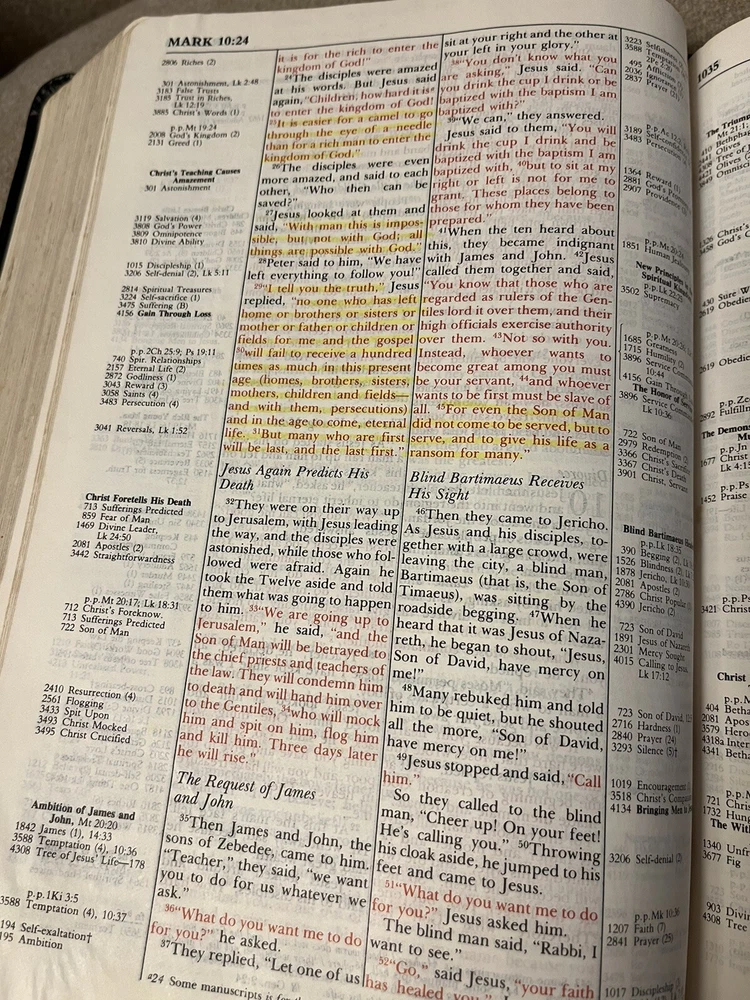 MARK 10:24
2806 Riches (2)
301 Astonishment, Lk 2:48
3183 False Trusts
3185 Trust in Riches,
Lk 12:19
3885 Christ's Words (1)
p.p.Mt 19:24
2008 God's Kingdom (2)
2131 Greed (1)
Christ's Teaching Causes
Amazement
301 Astonishment
3119 Salvation (4)
3808 God's Power
3809 Omnipotence
3810 Divine Ability
1015 Discipleship (1)
3206 Self-denial (2), Lk 5:11
2814 Spiritual Treasures
3224 Self-sacrifice (1)
3475 Suffering (B)
4156 Gain Through Loss
p.p.2Ch 25:9; Ps 19:11
740 Spir. Relationships
2157 Eternal Life (2)
2872 Godliness (1)
3043 Reward (3)
3058 Saints (4)
3483 Persecution (4)
3041 Reversals, Lk 1:52
Christ Foretells His Death
713 Sufferings Predicted
859 Fear of Man
1469 Divine Leader,
Lk 24:50
2081 Apostles (2)
3442 Straightforwardness
p.p.Mt 20:17; Lk 18:31
712 Christ's Foreknow.
713 Sufferings Predicted
722 Son of Man
2410 Resurrection (4)
2561 Flogging
3433 Spit Upon
3493 Christ Mocked
3495 Christ Crucified
Ambition of James and
John, Mt 20:20
1842 James (1), 14:33
3588 Temptation (4), 10:36
4308 Tree of Jesus' Life—178
p.p.1Ki 3:5
3588 Temptation (4), 10:37
194 Self-exaltation†
195 Ambition
it is for the rich to enter the
kingdom of God!"
24The disciples were amazed
at his words. But Jesus said
again, "Children, how hard it is
to enter the kingdom of God!
25It is easier for a camel to go
through the eye of a needle
than for a rich man to enter the
kingdom of God."
26The disciples were even
more amazed, and said to each
other, "Who then can be
saved?"
27Jesus looked at them and
said, "With man this is impos-
sible, but not with God; all
things are possible with God."
28Peter said to him, "We have
left everything to follow you!"
29"I tell you the truth," Jesus
replied, "no one who has left
home or brothers or sisters or
mother or father or children or
fields for me and the gospel
30will fail to receive a hundred
times as much in this present
age (homes, brothers, sisters,
mothers, children and fields—
and with them, persecutions)
and in the age to come, eternal
life. 31But many who are first
will be last, and the last first."
Jesus Again Predicts His
Death
32They were on their way up
to Jerusalem, with Jesus leading
the way, and the disciples were
astonished, while those who fol-
lowed were afraid. Again he
took the Twelve aside and told
them what was going to happen
to him. 33"We are going up to
Jerusalem," he said, "and the
Son of Man will be betrayed to
the chief priests and teachers of
the law. They will condemn him
to death and will hand him over
to the Gentiles, 34who will mock
him and spit on him, flog him
and kill him. Three days later
he will rise."
The Request of James
and John
35Then James and John, the
sons of Zebedee, came to him.
"Teacher," they said, "we want
you to do for us whatever we
ask."
36"What do you want me to do
for you?" he asked.
37They replied, "Let one of us
sit at your right and the other at
your left in your glory."
38"You don't know what you
are asking," Jesus said. "Can
you drink the cup I drink or be
baptized with the baptism I am
baptized with?"
39"We can," they answered.
Jesus said to them, "You will
drink the cup I drink and be
baptized with the baptism I am
baptized with, 40but to sit at my
right or left is not for me to
grant. These places belong to
those for whom they have been
prepared."
41When the ten heard about
this, they became indignant
with James and John. 42Jesus
called them together and said,
"You know that those who are
regarded as rulers of the Gen-
tiles lord it over them, and their
high officials exercise authority
over them. 43Not so with you.
Instead, whoever wants to
become great among you must
be your servant, 44and whoever
wants to be first must be slave of
all. 45For even the Son of Man
did not come to be served, but to
serve, and to give his life as a
ransom for many."
Blind Bartimaeus Receives
His Sight
46Then they came to Jericho.
As Jesus and his disciples, to-
gether with a large crowd, were
leaving the city, a blind man,
Bartimaeus (that is, the Son of
Timaeus), was sitting by the
roadside begging. 47When he
heard that it was Jesus of Naza-
reth, he began to shout, "Jesus,
Son of David, have mercy on
me!"
48Many rebuked him and told
him to be quiet, but he shouted
all the more, "Son of David,
have mercy on me!"
49Jesus stopped and said, "Call
him."
So they called to the blind
man, "Cheer up! On your feet!
He's calling you." 50Throwing
his cloak aside, he jumped to his
feet and came to Jesus.
51"What do you want me to do
for you?" Jesus asked him.
The blind man said, "Rabbi, I
want to see."
52"Go," said Jesus, "your faith
has healed you."
a24 Some manuscripts is for
3223
3588
495
2036
2837 Prayer
3189
3483 Persecution
1364 Reward
2881 God's
2907 Providence
1851 Human
3502 Supremacy
1685 Greatness
1715 Humility
3896 Service
10:44
4156 Gain
The Honor of
3896 Service
Lk 10:36
722 Son of Man
2979 Redemption
3366 Christ's
3367 Christ's Death
3901 Christ, Servant
Blind Bartimaeus
p.p.Lk 18:35
390 Begging (2)
1526 Blindness (2)
1878 Jericho
2081 Apostles (2)
2786 Christ Popular
4390 Jericho (2)
723 Son of David
1891 Jesus of Nazareth
2301 Mercy Sought
4015 Calling to Jesus,
Lk 17:12
723 Son of David
2716 Hardness (1)
2840 Prayer (24)
3293 Silence (5)†
1019 Encouragement
3518 Christ's
4134 Bringing Men
3206 Self-denial (2)
p.p.Mk 10:36
1207 Faith (7)
2841 Prayer (25)
1017
1035
The Triump